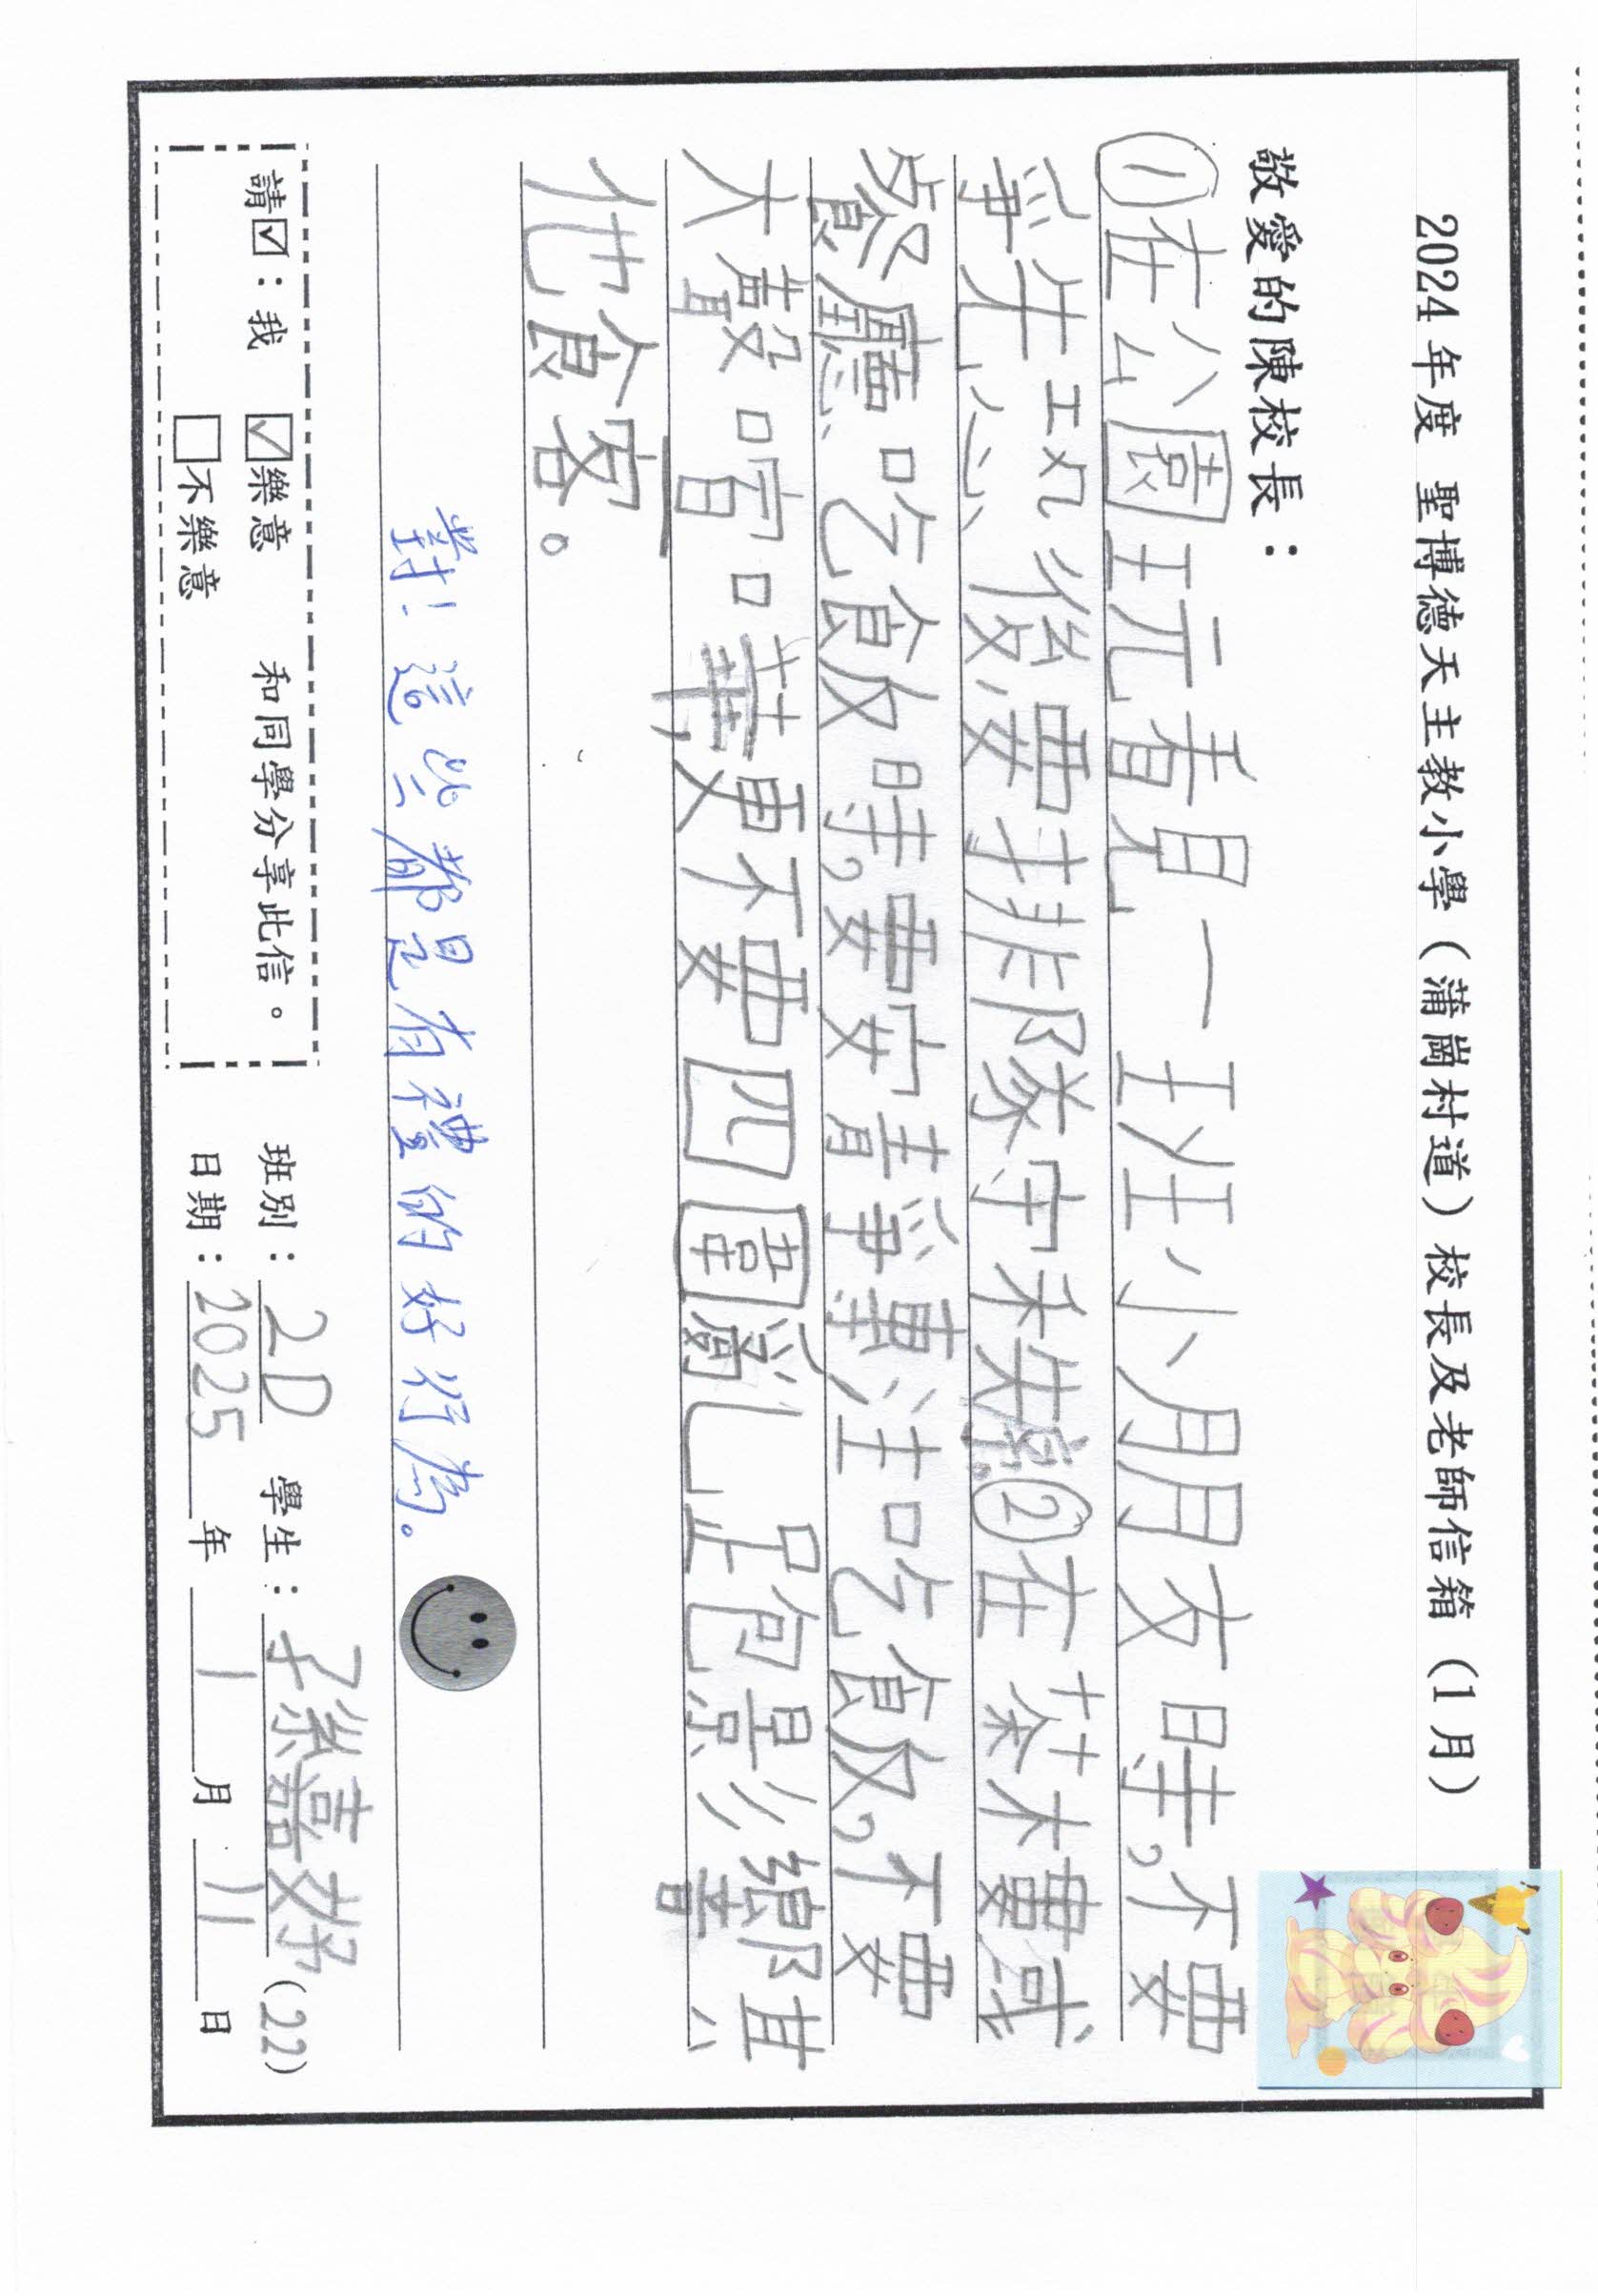 2024年度 聖博德天主教小學（蒲崗村道）校長及老師信箱（1月）
敬愛的陳校長：
①在公園玩看見一班小朋友時,不要
爭先恐後,要排隊守秩序。②在茶樓或
餐廳吃飯時,要安靜專注吃飯,不要
大聲喧嘩,更不要四圍亂跑影響其
他食客。
對！這些都是有禮的好行為。
請☑：我 ☑樂意 和同學分享此信。
□不樂意
班別：2D 學生：孫嘉妤(22)
日期：2025年1月11日